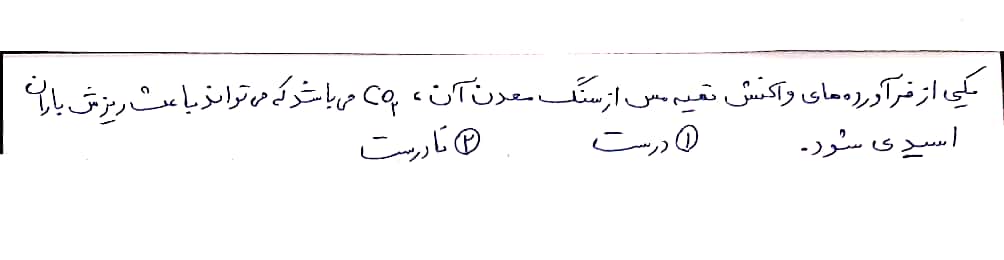 یکی از فرآورده‌های واکنش تهیه مس از سنگ معدن آن، CO₂ می‌باشد که می‌تواند باعث ریزش باران
اسیدی شود. ① درست ② نادرست